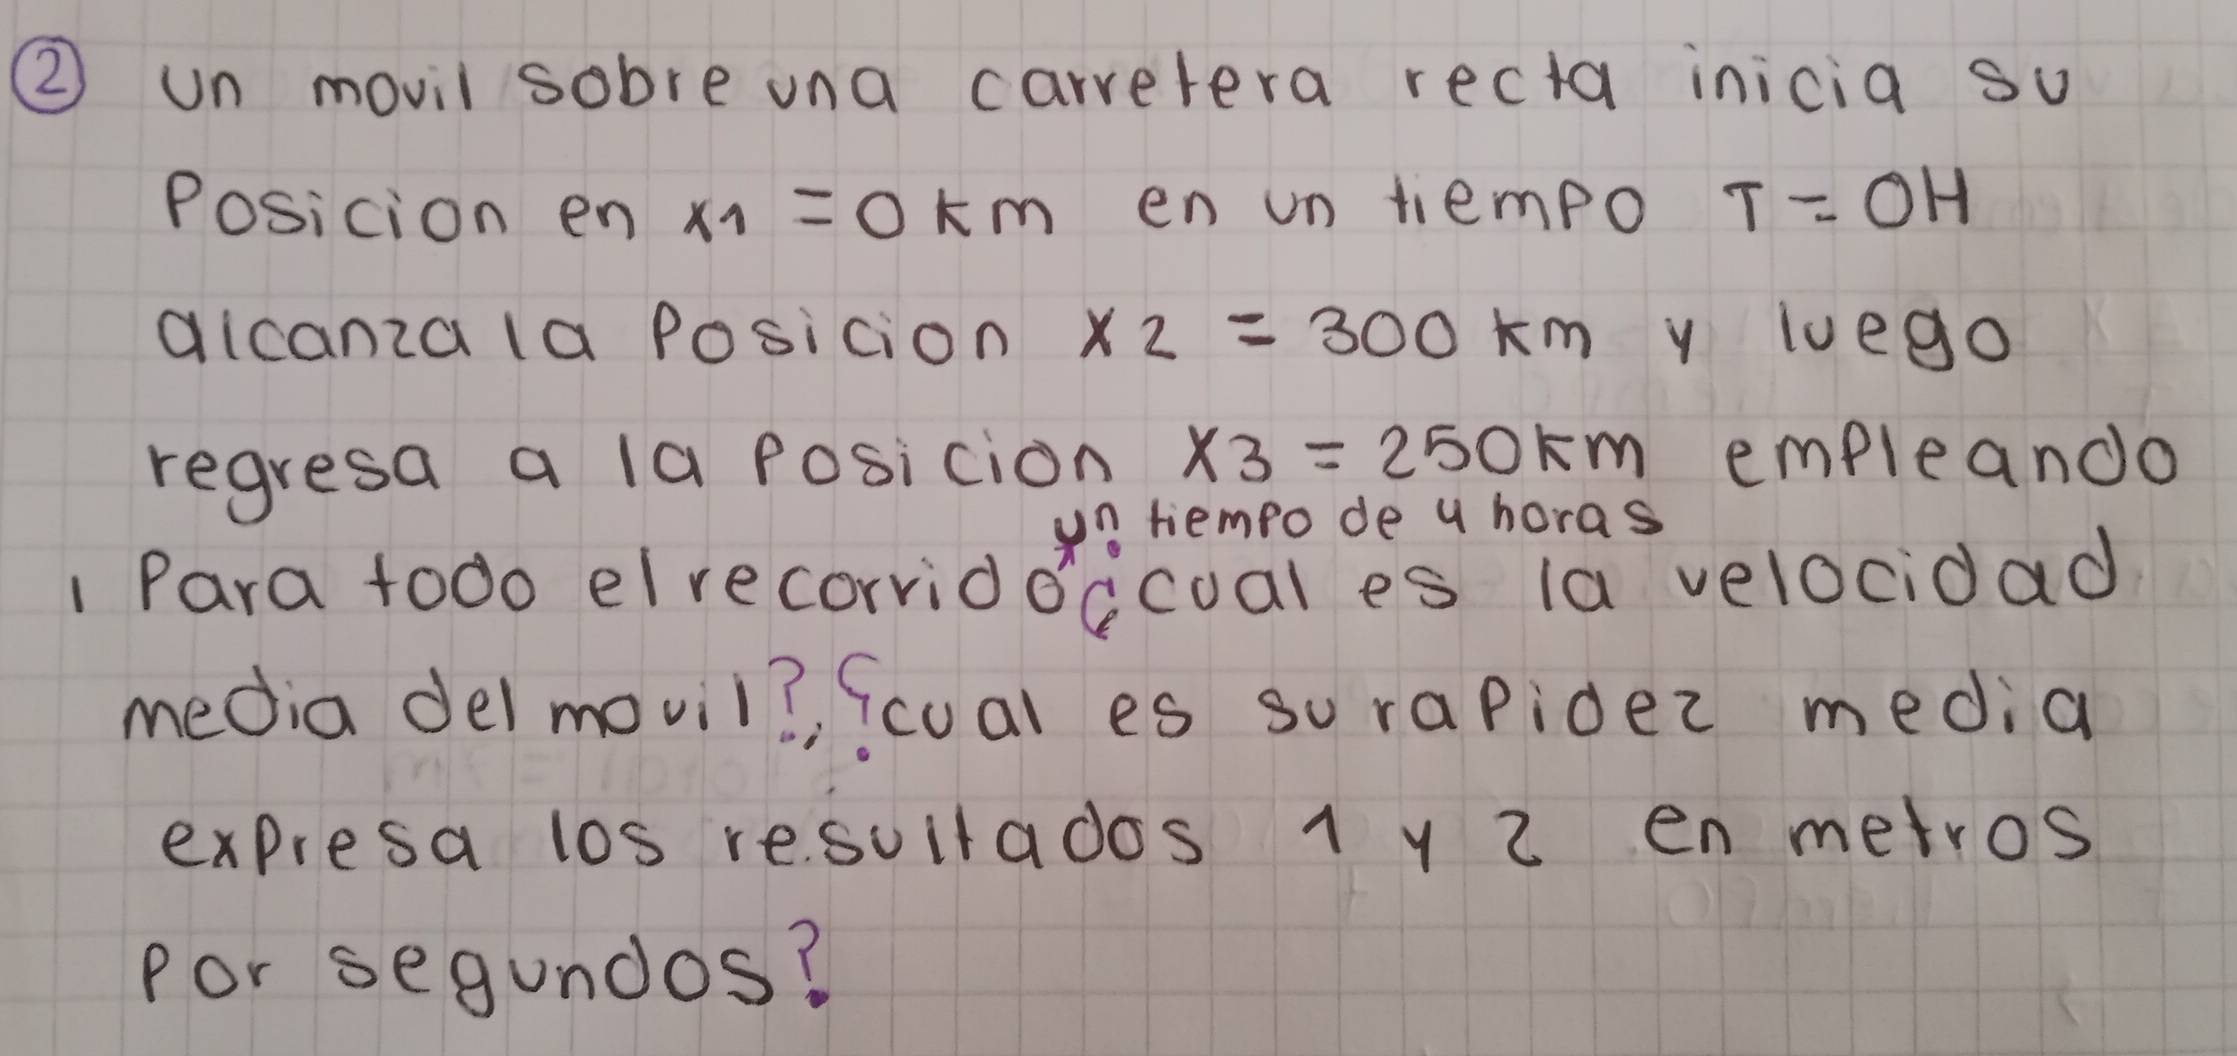 ② un movil sobre una carretera recta inicia su
Posicion en x1 = 0 km en un tiempo T = 0H
alcanza la Posicion x2 = 300 km y luego
regresa a la Posicion x3 = 250km empleando
un tiempo de 4 horas
1 Para todo el recorrido ¿cual es la velocidad
media del movil?, ¿cual es su rapidez media
expresa los resultados 1 y 2 en metros
por segundos?